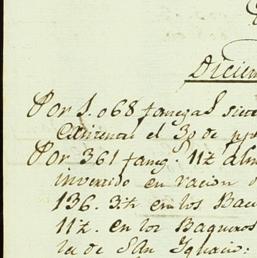 Diciem
Por 1.068 fanegas siete
el 30 de
Por 361 faneg. 11½ alm
invertido en racion d
136. 3½ en los Bue
11½. en los Baqueros
la de San Ignacio: